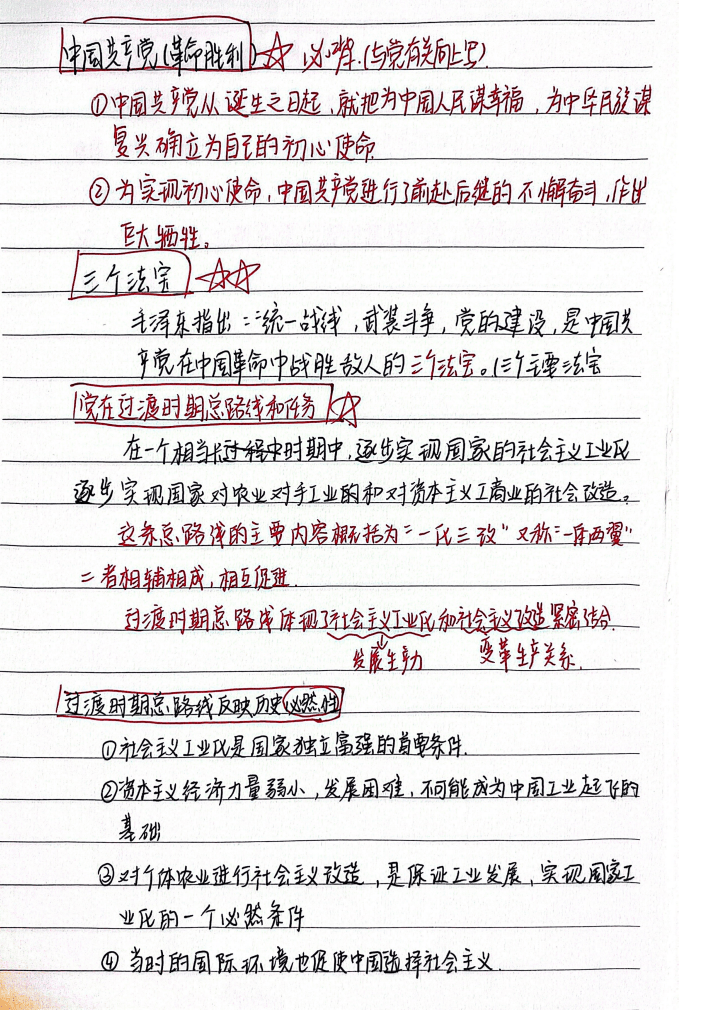 中国共产党(革命胜利)☆ 必背.(与党有关同上写)
①中国共产党从诞生之日起，就把为中国人民谋幸福，为中华民族谋
复兴确立为自己的初心使命.
②为实现初心使命,中国共产党进行了前赴后继的不懈奋斗,作出
巨大牺牲。
三个法宝 ☆☆
毛泽东指出:"统一战线,武装斗争,党的建设,是中国共
产党在中国革命中战胜敌人的三个法宝。(三个主要法宝
党在过渡时期总路线和任务 ☆
在一个相当长过程中时期中,逐步实现国家的社会主义工业化
逐步实现国家对农业对手工业的和对资本主义工商业的社会改造。
这条总路线的主要内容概括为"一化三改"又称"一体两翼"
二者相辅相成,相互促进.
过渡时期总路线体现了社会主义工业化和社会主义改造紧密结合.
发展生产力 变革生产关系.
过渡时期总路线反映历史必然性
①社会主义工业化是国家独立富强的首要条件.
②资本主义经济力量弱小,发展困难,不可能成为中国工业起飞的
基础
③对个体农业进行社会主义改造,是保证工业发展,实现国家工
业化的一个必然条件
④当时的国际环境也促使中国选择社会主义.